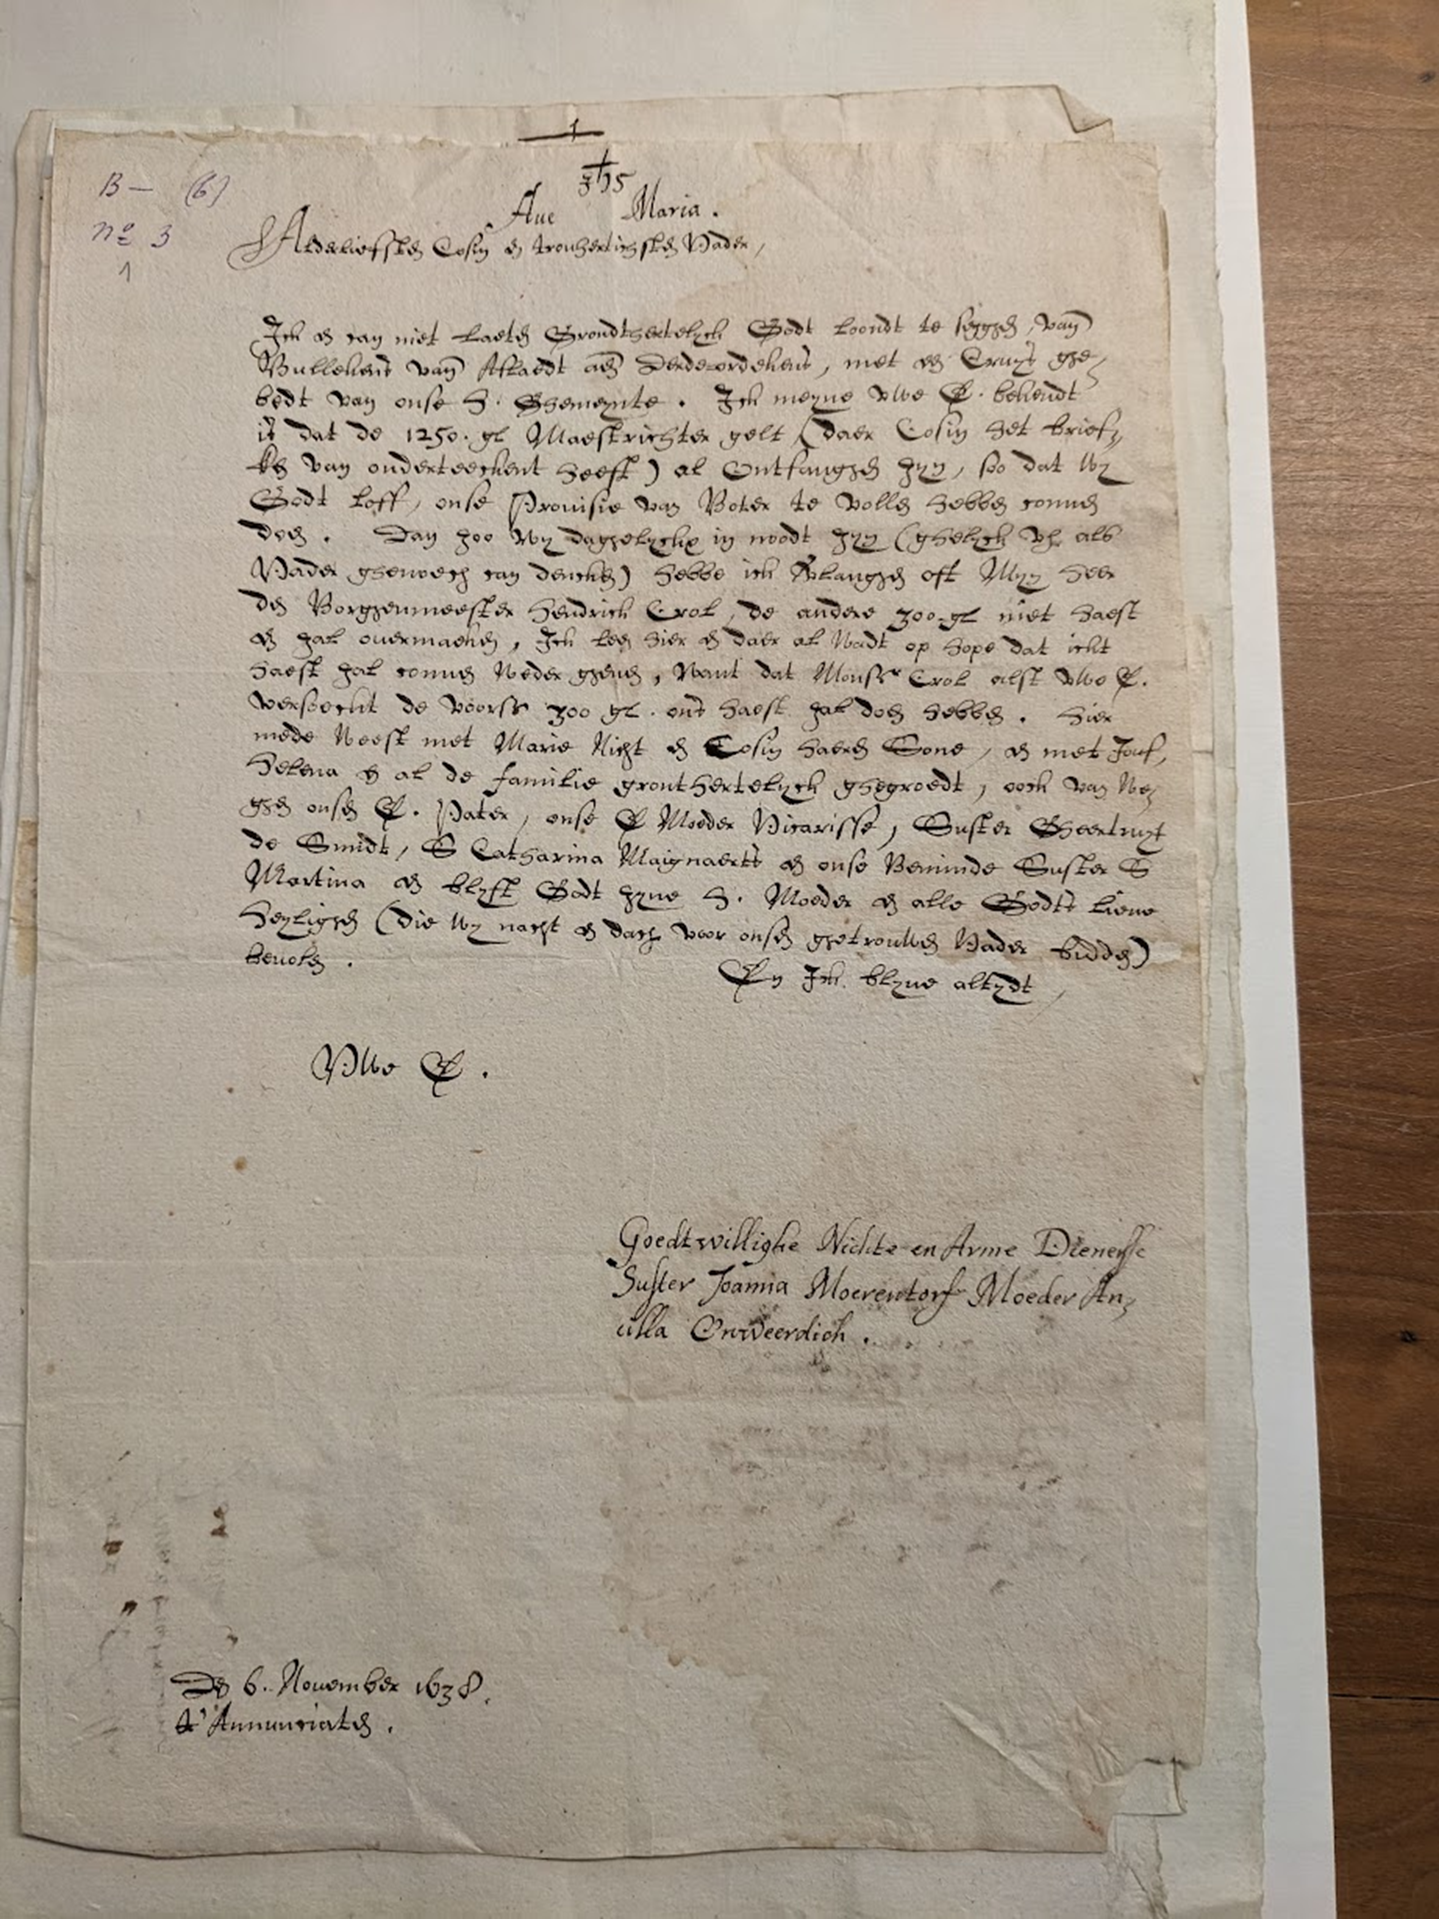 B — (6)
No 3
1
JHS
Aue Maria.
Alderliefsten Cosin en trouhertichsten Vader,
Ick en can niet laeten Grondthertelyck Godt loondt te seggen, van
Bullekens van Afflaedt aen Derdeordekens, met een Cruys ghe„
bedt van onse H. Ghemeynte. Ick meyne vwe E. bekendt
is dat de 1250. gl Maestrichter gelt (daer Cosin het brief„
ken van onderteeckent heeft) al Ontfanghen zyn, soo dat wy
Godt loff, onse Prouisie van Boter te vollen hebben connen
doen. Dan zoo wy daghelyckx in noodt zyn (ghelyck als
Vader ghenoech can dencken) hebbe ick Verlanghen oft Myn Heer
den Borghenmeester Hendrick Crol, de andere 300-gl niet haest
en zal ouermaeken, Ick leen hier en daer al wadt op hope dat ickt
haest zal connen weder gheuen, want dat Monsr Crol alst vwe E.
versoeckt de voors 300 gl. ons haest zal doen hebben. Hier
mede weest met Marie Nicht en Cosin haeren Sone, en met Jouf,
Helena en al de familie gronthertelyck ghegroedt, oock van we„
ghen onsen E. Pater, onse E Moeder Vicarisse, Suster Gheertruyt
de Smidt, S Catharina Maignaerts en onse Beminde Suster S
Martina en blyft Godt zyne H. Moeder en alle Godts lieue
Heylighen (die wy nacht en dach voor onsen ghetrouwen Vader bidden)
beuolen.
En Ick blyue altydt,
Vwe E.
Goedtwillighe Nichte en Arme Dienersse
Suster Joanna Moerentorf Moeder An„
cilla Onweerdich.
Den 6. Nouember 1638.
t'Annunciaten.